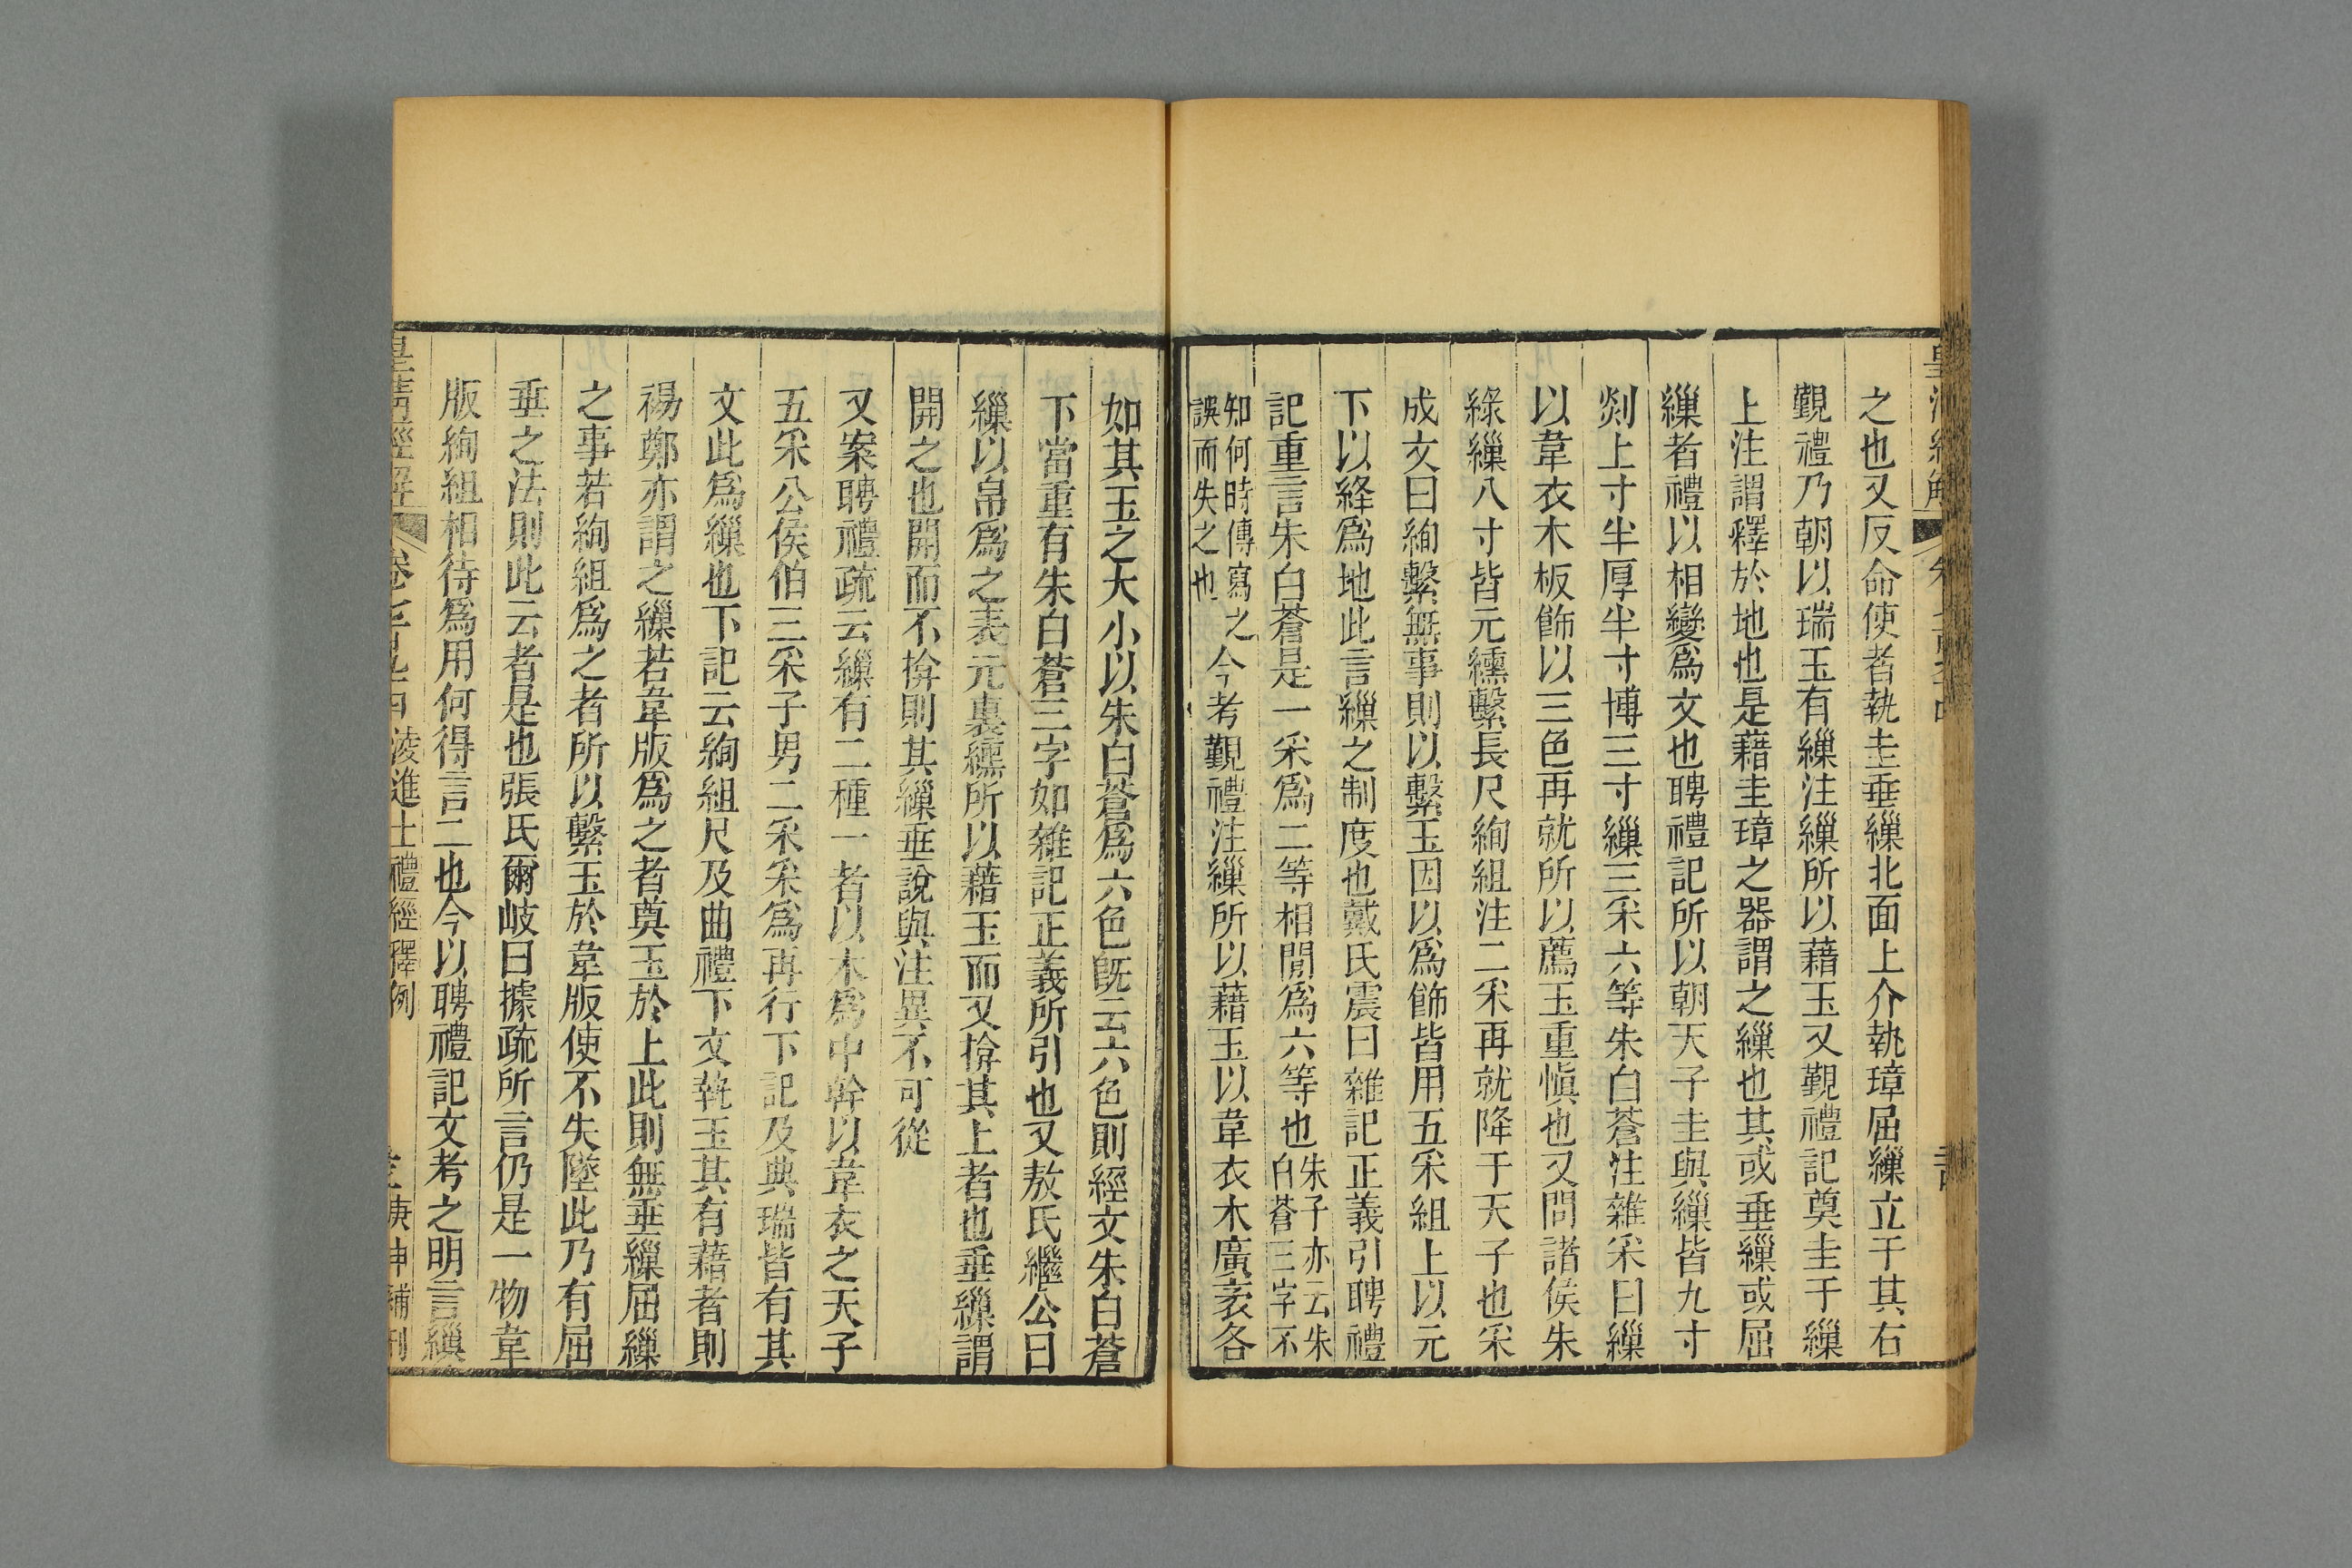 之也又反命使者執圭垂繅北面上介執璋屈繅立于其右
覲禮乃朝以瑞玉有繅注繅所以藉玉又覲禮記奠圭于繅
上注謂釋於地也是藉圭璋之器謂之繅也其或垂繅或屈
繅者禮以相變為文也聘禮記所以朝天子圭與繅皆九寸
剡上寸半厚半寸博三寸繅三采六等朱白蒼注雜采曰繅
以韋衣木板飾以三色再就所以薦玉重慎也又問諸侯朱
綠繅八寸皆元纁繫長尺絢組注二采再就降于天子也采
成文曰絢繫無事則以繫玉因以為飾皆用五采組上以元
下以絳為地此言繅之制度也戴氏震曰雜記正義引聘禮
記重言朱白蒼是一采為二等相閒為六等也朱子亦云朱白蒼三字不
知何時傳寫之誤而失之也今考覲禮注繅所以藉玉以韋衣木廣袤各
如其玉之大小以朱白蒼為六色旣云六色則經文朱白蒼
下當重有朱白蒼三字如雜記正義所引也又敖氏繼公曰
繅以帛為之表元裏纁所以藉玉而又揜其上者也垂繅謂
開之也開而不揜則其繅垂說與注異不可從
又案聘禮疏云繅有二種一者以木為中幹以韋衣之天子
五采公侯伯三采子男二采采為再行下記及典瑞皆有其
文此為繅也下記云絢組尺及曲禮下文執玉其有藉者則
裼鄭亦謂之繅若韋版為之者奠玉於上此則無垂繅屈繅
之事若絢組為之者所以繫玉於韋版使不失墜此乃有屈
垂之法則此云者是也張氏爾岐曰據疏所言仍是一物韋
版絢組相待為用何得言二也今以聘禮記文考之明言繅
皇清經解 卷七百九十四 淩進士禮經釋例 庚申補刊